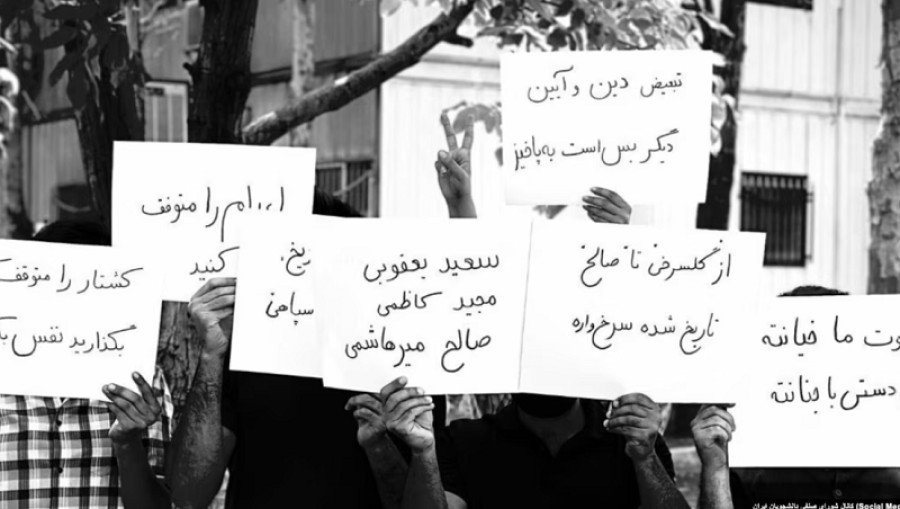 تبعیض دین و آیین
دیگر بس است به‌پاخیز
اعدام را متوقف
کنید
کشتار را متوقف
بگذارید نفس
سپاهی
سعید یعقوبی
مجید کاظمی
صالح میرهاشمی
از گلسرخی تا صالح
تاریخ شده سرخ‌واره
ما خیانته
دستی با جنانته
کانال شورای صنفی دانشجویان ایران (Social Me